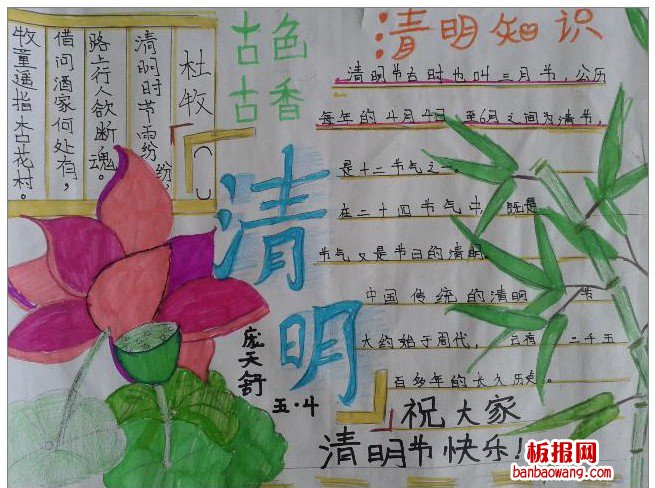 古色
古香
清明
杜牧
清明时节雨纷纷,
路上行人欲断魂。
借问酒家何处有,
牧童遥指杏花村。
庞天舒
五·4
清明知识
清明节古时也叫三月节,公历
每年的4月4日至6日之间为清节,
是十二节气之一。
在二十四节气中 既是
节气又是节日的清明
中国传统的清明 节
大约始于周代, 二千五
百多年的长久历史。
祝大家
清明节快乐!
板报网
banbaowang.com